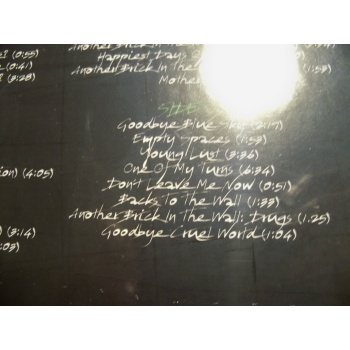 ? (0:55)
(0:41)
? (3:28)
ion) (4:05)
) (3:14)
:03)
Another Brick In The
Happiest Days
Another Brick In The (1:53)
Mother
SIDE
Goodbye Blue
Empty Spaces (1:53)
Young Lust (3:36)
One Of My Turns (6:34)
Don't Leave Me Now (0:51)
Backs To The Wall (1:33)
Another Brick In The Wall: Drugs (1:25)
Goodbye Cruel World (1:04)